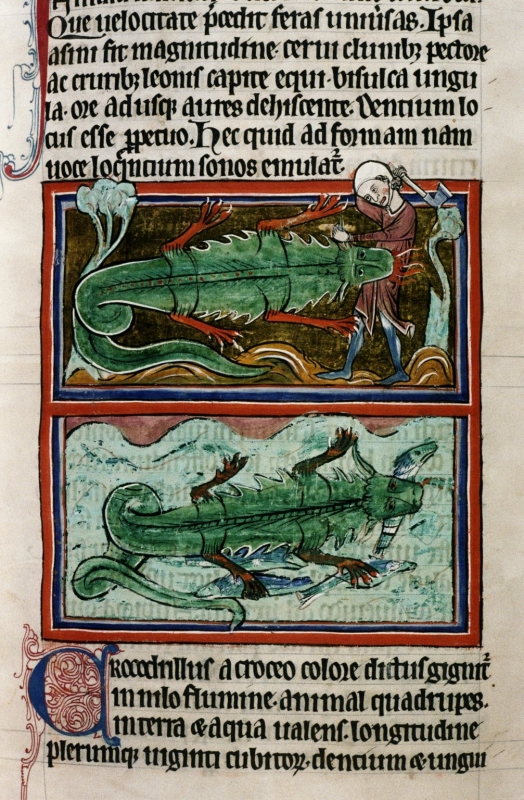 Que uelocitate p̄cedit feras uniuṡas. Ipsa
asini fit magnitudine. cerui clunibꝫ pectore
ac cruribꝫ leonis capite equi. bisulca ungu
la. ore ad usqꝫ aures dehiscente. Dentium lo
cus esse ꝑpetuo. Hec quid ad formam nam
uoce loq̄ntium sonos emulat̄
Crocodrillus a croceo colore dictus gignit̄
in nilo flumine. animal quadrupes.
in terra & aqua ualens. longitudine
plerumqꝫ uiginti cubitoꝝ. dentium & ungui